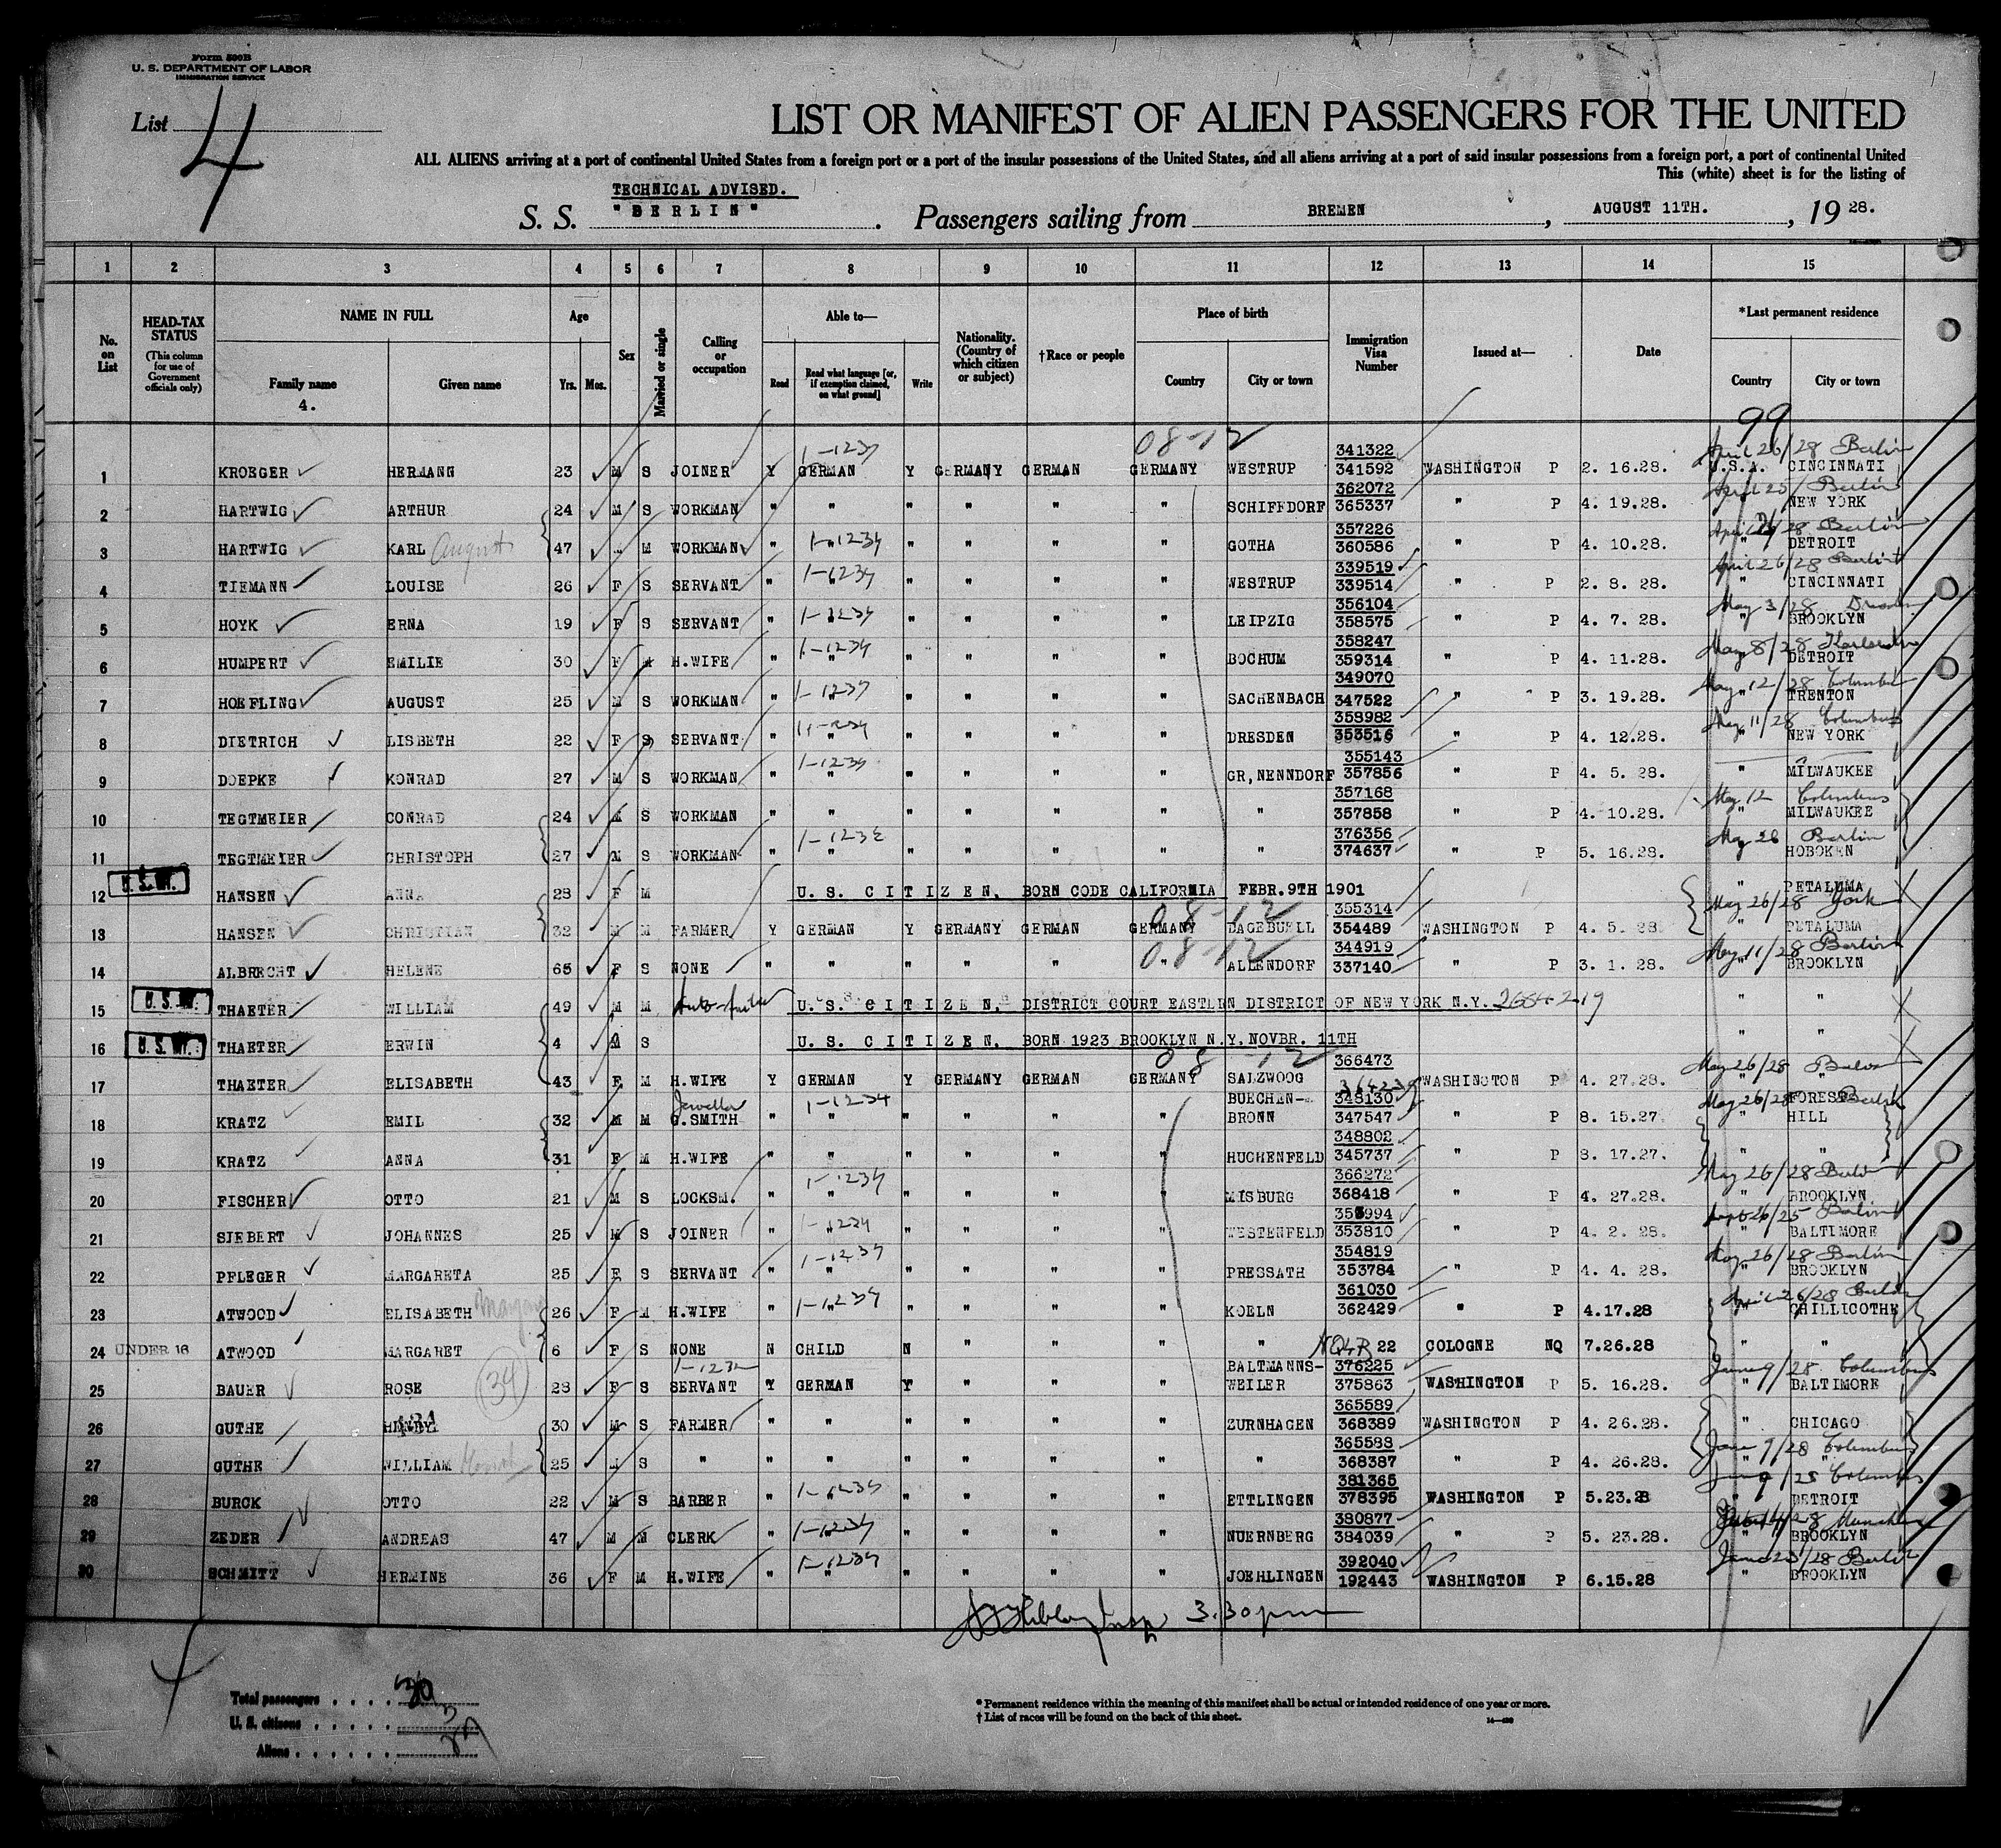 Form 500B
U. S. DEPARTMENT OF LABOR
IMMIGRATION SERVICE
List 4
LIST OR MANIFEST OF ALIEN PASSENGERS FOR THE UNITED
ALL ALIENS arriving at a port of continental United States from a foreign port or a port of the insular possessions of the United States, and all aliens arriving at a port of said insular possessions from a foreign port, a port of continental United
This (white) sheet is for the listing of
TECHNICAL ADVISED.
S. S. "BERLIN". Passengers sailing from BREMEN, AUGUST 11TH., 19 28.
1 2 3 4 5 6 7 8 9 10 11 12 13 14 15
No. on List
HEAD-TAX STATUS
(This column for use of Government officials only)
NAME IN FULL
Family name
4.
Given name
Age
Yrs. Mos.
Sex
Married or single
Calling or occupation
Able to—
Read
Read what language [or, if exemption claimed, on what ground]
Write
Nationality. (Country of which citizen or subject)
†Race or people
Place of birth
Country
City or town
Immigration Visa Number
Issued at—
Date
*Last permanent residence
Country
City or town
99
08-12
1-1234
341322 April 26/28 Berlin
1 KROEGER HERMANN 23 M S JOINER Y GERMAN Y GERMANY GERMAN GERMANY WESTRUP 341592 WASHINGTON P 2. 16.28. U.S.A. CINCINNATI
362072 Berlin
2 HARTWIG ARTHUR 24 M S WORKMAN " " " " " " SCHIFFDORF 365337 " P 4. 19.28. " NEW YORK
357226 Berlin
3 HARTWIG KARL August 47 M WORKMAN " 1-1234 " " " " GOTHA 360586 " P 4. 10.28. " DETROIT
339519 April 26/28 Berlin
4 TIEMANN LOUISE 26 F S SERVANT " 1-1234 " " " " WESTRUP 339514 " P 2. 8. 28. " CINCINNATI
356104 May 3/28 Dresden
5 HOYK ERNA 19 F S SERVANT " 1-1234 " " " " LEIPZIG 358575 " P 4. 7. 28. " BROOKLYN
358247 May 8/28 Karlsruhe
6 HUMPERT EMILIE 30 F M H.WIFE " 1-1234 " " " " BOCHUM 359314 " P 4. 11.28. " DETROIT
349070 May 12/28 Columbus
7 HOEFLING AUGUST 25 M S WORKMAN " 1-1234 " " " " SACHENBACH 347522 " P 3. 19.28. " TRENTON
358982 May 11/28 Columbus
8 DIETRICH LISBETH 22 F S SERVANT " " " " " " DRESDEN 353516 " P 4. 12.28. " NEW YORK
355143
9 DOEPKE KONRAD 27 M S WORKMAN " 1-1234 " " " " GR,NENNDORF 357856 " P 4. 5. 28. " MILWAUKEE
357168 May 12 Columbus
10 TEGTMEIER CONRAD 24 M S WORKMAN " " " " " " " 357858 " P 4. 10.28. " MILWAUKEE
376356 May 26 Berlin
11 TEGTMEIER CHRISTOPH 27 M S WORKMAN " " " " " " " 374637 " P 5. 16.28. HOBOKEN
12 HANSEN ANNA 28 F M U. S. CITIZEN, BORN CODE CALIFORNIA FEBR. 9TH 1901 " PETALUMA
08-12 355314 May 26/28 York
13 HANSEN CHRISTIAN 32 M M FARMER Y GERMAN Y GERMANY GERMAN GERMANY DAGEBUELL 354489 WASHINGTON P 4. 5. 28. " PETALUMA
08-12 344919 May 11/28 Berlin
14 ALBRECHT HELENE 65 F S NONE " " " " " " ALLENDORF 337140 " P 3. 1. 28. " BROOKLYN
15 THAETER WILLIAM 49 M M U. S. CITIZEN, DISTRICT COURT EASTERN DISTRICT OF NEW YORK N.Y. " "
16 THAETER ERWIN 4 S U. S. CITIZEN, BORN 1923 BROOKLYN N.Y. NOVBR. 11TH " "
08-12 366473 May 26/28
17 THAETER ELISABETH 43 F M H.WIFE Y GERMAN Y GERMANY GERMAN GERMANY SALZWOOG WASHINGTON P 4. 27.28. "
Jeweller 1-1234 BUECHEN- 348130 May 26/28 FOREST
18 KRATZ EMIL 32 M M G.SMITH " " " " " " BRONN 347547 " P 8. 15.27. HILL
348802
19 KRATZ ANNA 31 F M H.WIFE " " " " " " HUCHENFELD 345737 " P 8. 17.27. " "
366272 May 26/28 Berlin
20 FISCHER OTTO 21 M S LOCKSM. " 1-1234 " " " " MISBURG 368418 " P 4. 27.28. " BROOKLYN
Berlin
21 SIEBERT JOHANNES 25 M S JOINER " 1-1234 " " " " WESTENFELD 353810 " P 4. 2. 28. " BALTIMORE
354819 May 26/28 Berlin
22 PFLEGER MARGARETA 25 F S SERVANT " 1-1234 " " " " PRESSATH 353784 " P 4. 4. 28. " BROOKLYN
361030 April 26/28 Berlin
23 ATWOOD ELISABETH 26 F M H.WIFE " 1-1234 " " " " KOELN 362429 " P 4.17.28 " CHILLICOTHE
24 UNDER 16 ATWOOD MARGARET 6 F S NONE N CHILD N " " " " 22 COLOGNE NQ 7.26.28 " "
34 BALTMANNS- 376225 June 9/28 Columbus
25 BAUER ROSE 28 F S SERVANT Y GERMAN Y " " " WEILER 375863 WASHINGTON P 5. 16.28. " BALTIMORE
365589
26 GUTHE HENRY 30 M S FARMER " " " " " " ZURNHAGEN 368389 WASHINGTON P 4. 26.28. " CHICAGO
365588 June 9/28 Columbus
27 GUTHE WILLIAM 25 S " " " " " " " " 368387 " P 4. 26.28. " "
381365 June 9/28 Columbus
28 BURCK OTTO 22 M S BARBER " 1-1234 " " " " ETTLINGEN 378395 WASHINGTON P 5.23.28 " DETROIT
380877 Munchen
29 ZEDER ANDREAS 47 M M CLERK " 1-1234 " " " " NUERNBERG 384039 " P 5. 23.28. " BROOKLYN
392040 Berlin
30 SCHMITT HERMINE 36 F M H.WIFE " 1-1234 " " " " JOEHLINGEN 192443 WASHINGTON P 6.15.28 " BROOKLYN
3.30 pm
Total passengers . . . . 30
U. S. citizens . . . . . 3
Aliens . . . . . . 27
* Permanent residence within the meaning of this manifest shall be actual or intended residence of one year or more.
† List of races will be found on the back of this sheet.